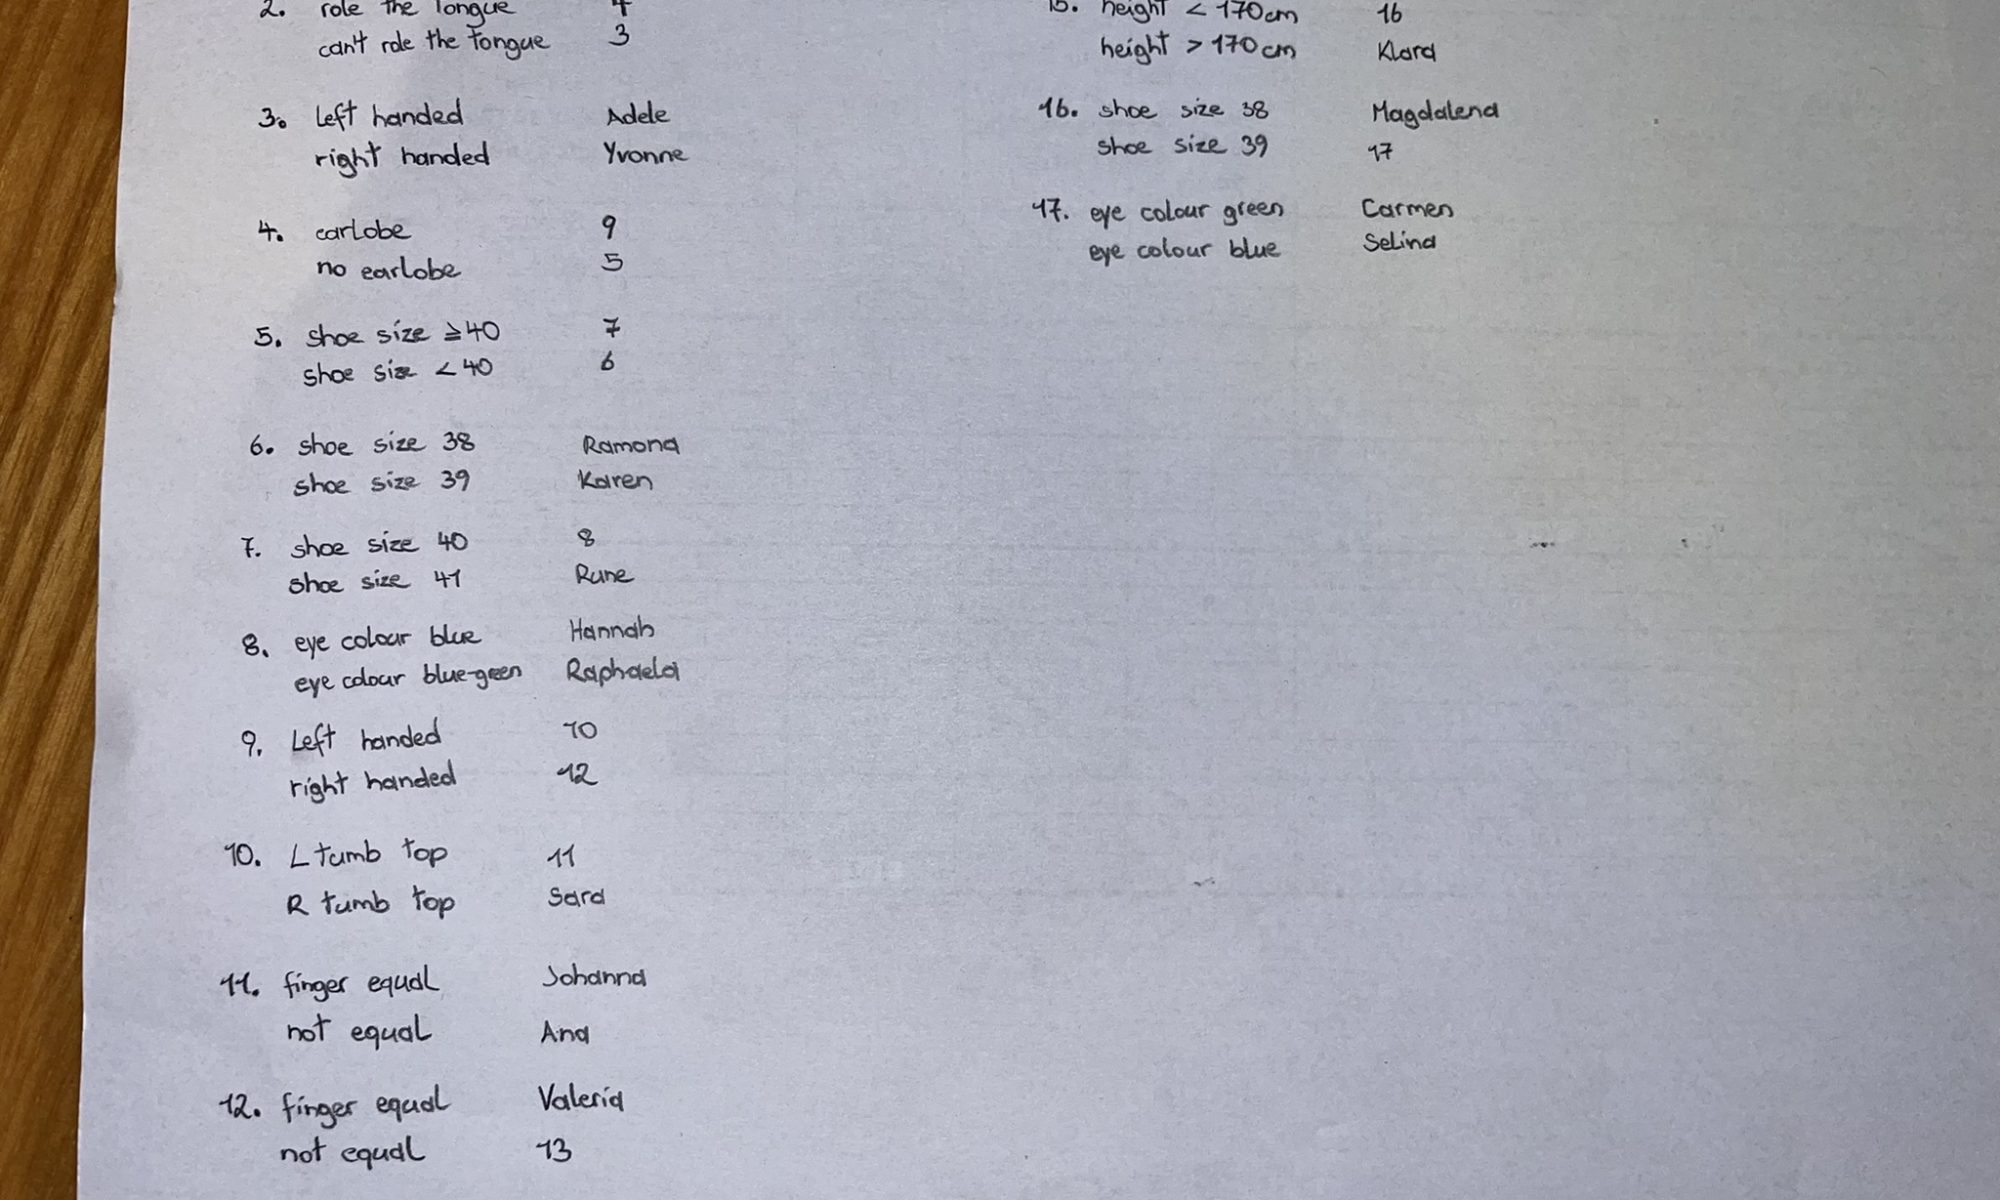 2. role the tongue 4
can't role the tongue 3
3. left handed Adele
right handed Yvonne
4. earlobe 9
no earlobe 5
5. shoe size ≥40 7
shoe size <40 6
6. shoe size 38 Ramona
shoe size 39 Karen
7. shoe size 40 8
shoe size 41 Rune
8. eye colour blue Hannah
eye colour blue-green Raphaela
9. Left handed 10
right handed 12
10. L tumb top 11
R tumb top Sara
11. finger equal Johanna
not equal Ana
12. finger equal Valeria
not equal 13
15. height < 170cm 16
height > 170cm Klara
16. shoe size 38 Magdalena
shoe size 39 17
17. eye colour green Carmen
eye colour blue Selina